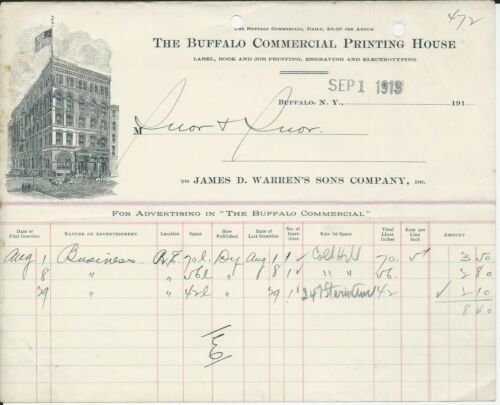 472
THE BUFFALO COMMERCIAL, DAILY, $6.00 PER ANNUM
THE BUFFALO COMMERCIAL PRINTING HOUSE
LABEL, BOOK AND JOB PRINTING, ENGRAVING AND ELECTROTYPING
SEP 1 1913
BUFFALO, N. Y., 191
M Suor & Suor.
TO JAMES D. WARREN'S SONS COMPANY, DR.
FOR ADVERTISING IN "THE BUFFALO COMMERCIAL"
Date of First Insertion NATURE OF ADVERTISEMENT Location Space How Published Date of Last Insertion No. of Insertions Rate for Space Total Lines Inches Rate per Line Inch AMOUNT
Aug 1 Business 70 l. Dy Aug 1 1 ✓ 70. 5¢ 3 50
8 " " 56 l " 8 1 ✓ " " 56. 2 80
29 " " 42 l " 29 1 42 ✓ 2 10
8 40